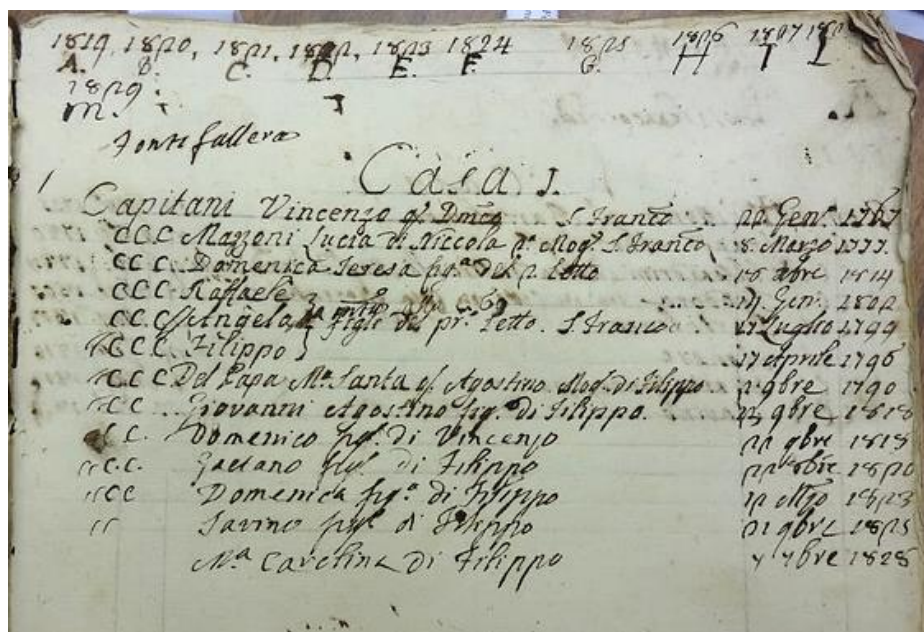 1819, 1820, 1821, 1822, 1823 1824 1825 1826 1827
A. B. C. D. E. F. G. H I L
1829.
M.
Fonti fallera
Casa 1.
1 Capitani Vincenzo q. Dmco S. Franco 22 Gen. 1767
C C C Mazzoni Lucia di Niccola 2a Mog. S. Franco 8 Marzo 1777
C C C. Domenica Teresa fig.a del 2 Letto 1814
C C C Raffaele Gen. 1802
C C C Angela figli del pr. Letto. S. Franco Luglio 1799
C C C. Filippo 17 Aprile 1796
C C C Del Papa Ma. Santa q. Agostino Mog. di Filippo 9bre 1790
C C Giovanni Agostino fig.o di Filippo. 9bre 1818
C C. Domenico fig. di Vincenzo 22 9bre 1818
C.C. Gaetano fig. di Filippo 22 1820
C C Domenica fig.a di Filippo 12 1823
Savino fig. di Filippo 21 9bre 1825
M.a Carolina di Filippo 7bre 1828